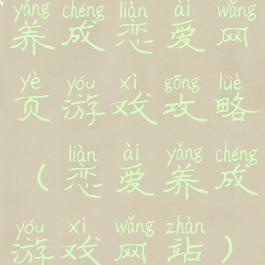 yǎng chéng liàn ài wǎng
养成恋爱网
yè yóu xì gōng lüè
页游戏攻略
liàn ài yǎng chéng
（恋爱养成
yóu xì wǎng zhàn
游戏网站）